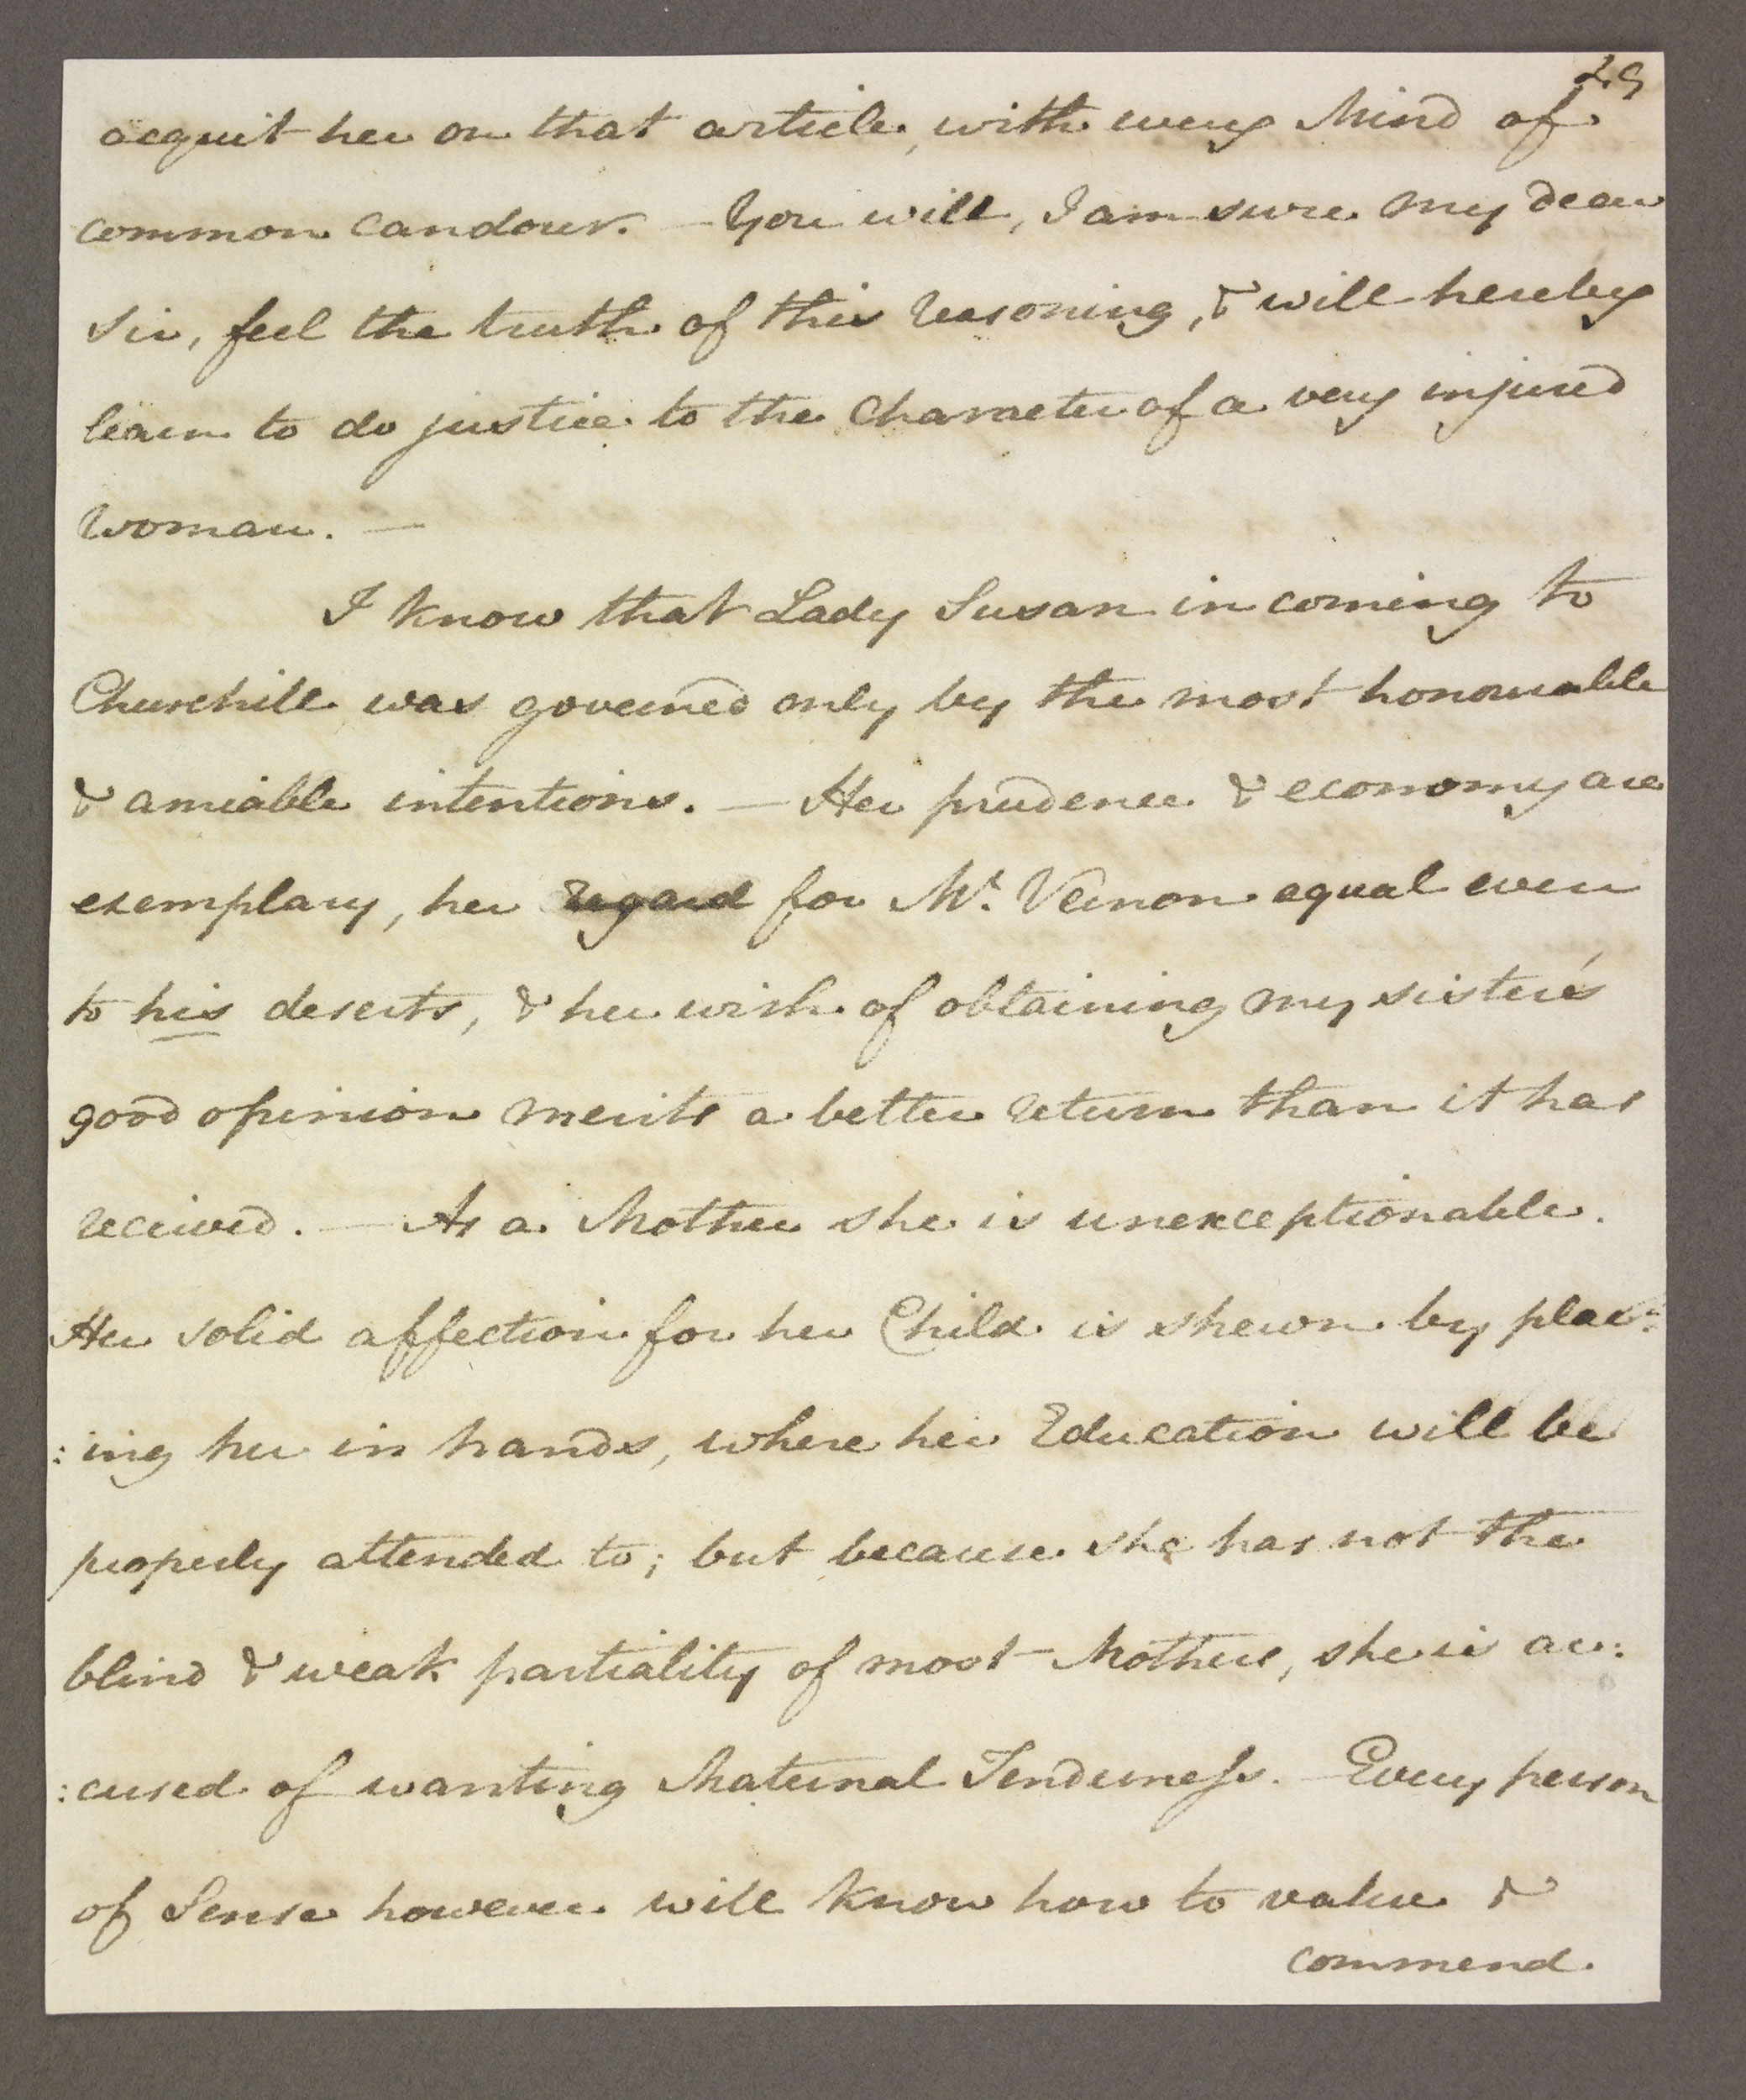 29
acquit her on that article, with every Mind of
common candour. — You will, I am sure my dear
Sir, feel the truth of this reasoning, & will hereby
learn to do justice to the Character of a very injured
Woman. —
I know that Lady Susan in coming to
Churchill was governed only by the most honourable
& amiable intentions. — Her prudence & economy are
exemplary, her regard for Mr. Vernon equal even
to his deserts, & her wish of obtaining my sister's
good opinion merits a better return than it has
received. — As a Mother she is unexceptionable.
Her solid affection for her Child is shewn by plac:
:ing her in hands, where her Education will be
properly attended to; but because she has not the
blind & weak partiality of most Mothers, she is ac:
:cused of wanting Maternal Tenderness. — Every person
of Sense however will know how to value &
commend.